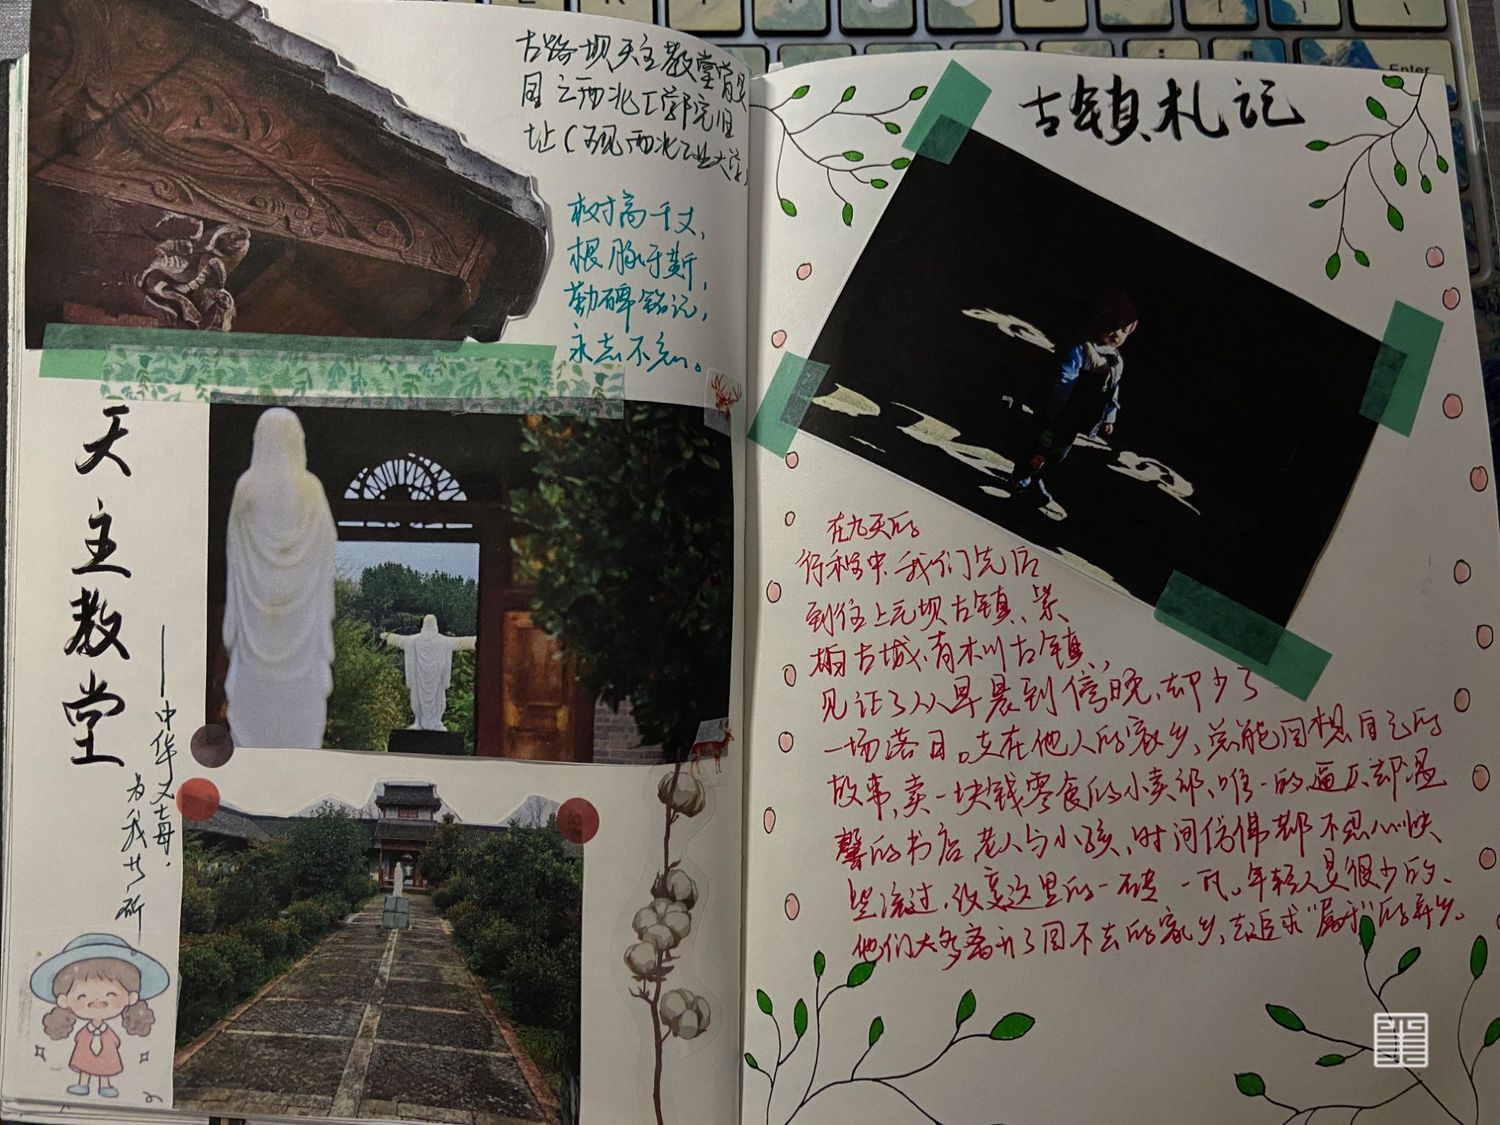 古路坝天主教堂曾是
国立西北工学院旧
址（现西北工业大学）
树高千丈，
根脉于斯，
勒碑铭记，
永志不忘。
天主教堂
——中华文母，
为我其祈
古镇札记
在九天的
行程中，我们先后
到往上元坝古镇、
古城、青木川古镇，
见证了从早晨到傍晚，却少了
一场落日。走在他人的家乡，总能回想自己的
故事，卖一块钱零食的小卖部，唯一的逼仄却温
馨的书店，老人与小孩，时间仿佛都不忍心快
些流过，改变这里的一砖一瓦。年轻人是很少的，
他们大多离开了回不去的家乡，去追求“属于”的异乡。
Enter